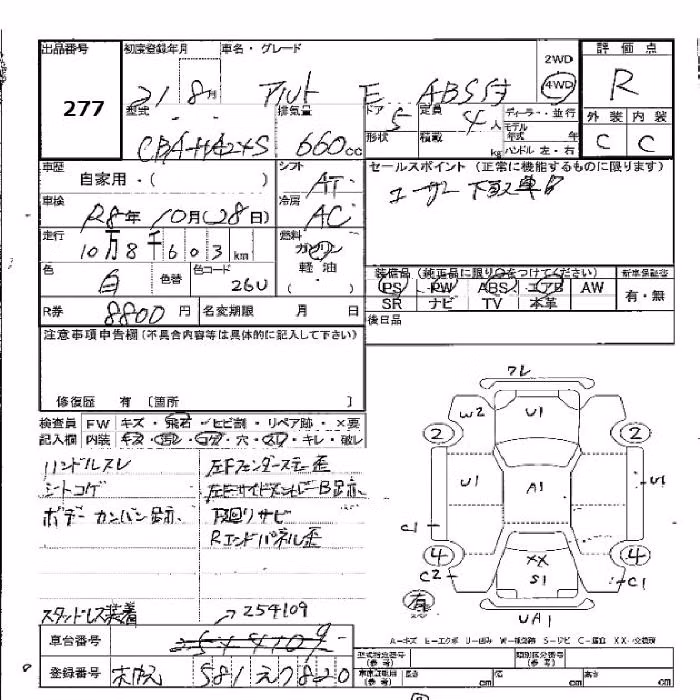 出品番号 初度登録年月 車名・グレード 2WD 評価点
277 21 8月 アルト E ABS付 4WD R
型式 排気量 ドア 5 定員 4人 ディーラー・並行 外装 内装
CBA-HA24S 660cc 形状 積載 kg モデル年式 年 C C
ハンドル 左・右
車歴 自家用・( ) シフト AT セールスポイント (正常に機能するものに限ります)
ユーザー下取車
車検 R8年 10月(28日) 冷房 AC
走行 10万8千603km 燃料 ガソリン
軽油
( )
色 白 色替 色コード 26U
装備品 (純正品に限り○をつけてください) 新車保証書
PS PW ABS エアB AW 有・無
SR ナビ TV 本革
R券 8800円 名変期限 月 日 後日品
注意事項申告欄 (不具合内容等は具体的に記入して下さい)
修復歴 有 〔箇所 〕
検査員 FW キズ・飛石・ヒビ割・リペア跡・×要
記入欄 内装 キズ・汚レ・コゲ・穴・スレ・キレ・破レ
ハンドルスレ 左Fフェンダーステー歪
シートコゲ
ボデーカンバン跡 下廻りサビ
Rエンドパネル歪
スタッドレス装着 254109
車台番号
登録番号 581 え 7820
フレ
W2 U1
2 2
U1 A1 U1
C1
4 XX 4
C2 S1 C1
有
UA1
A-キズ E-エクボ U-凹み W-補修跡 S-サビ C-腐食 XX-交換済
型式指定番号 (参考) 類別区分番号 (参考)
長さ cm 幅 cm 高さ cm